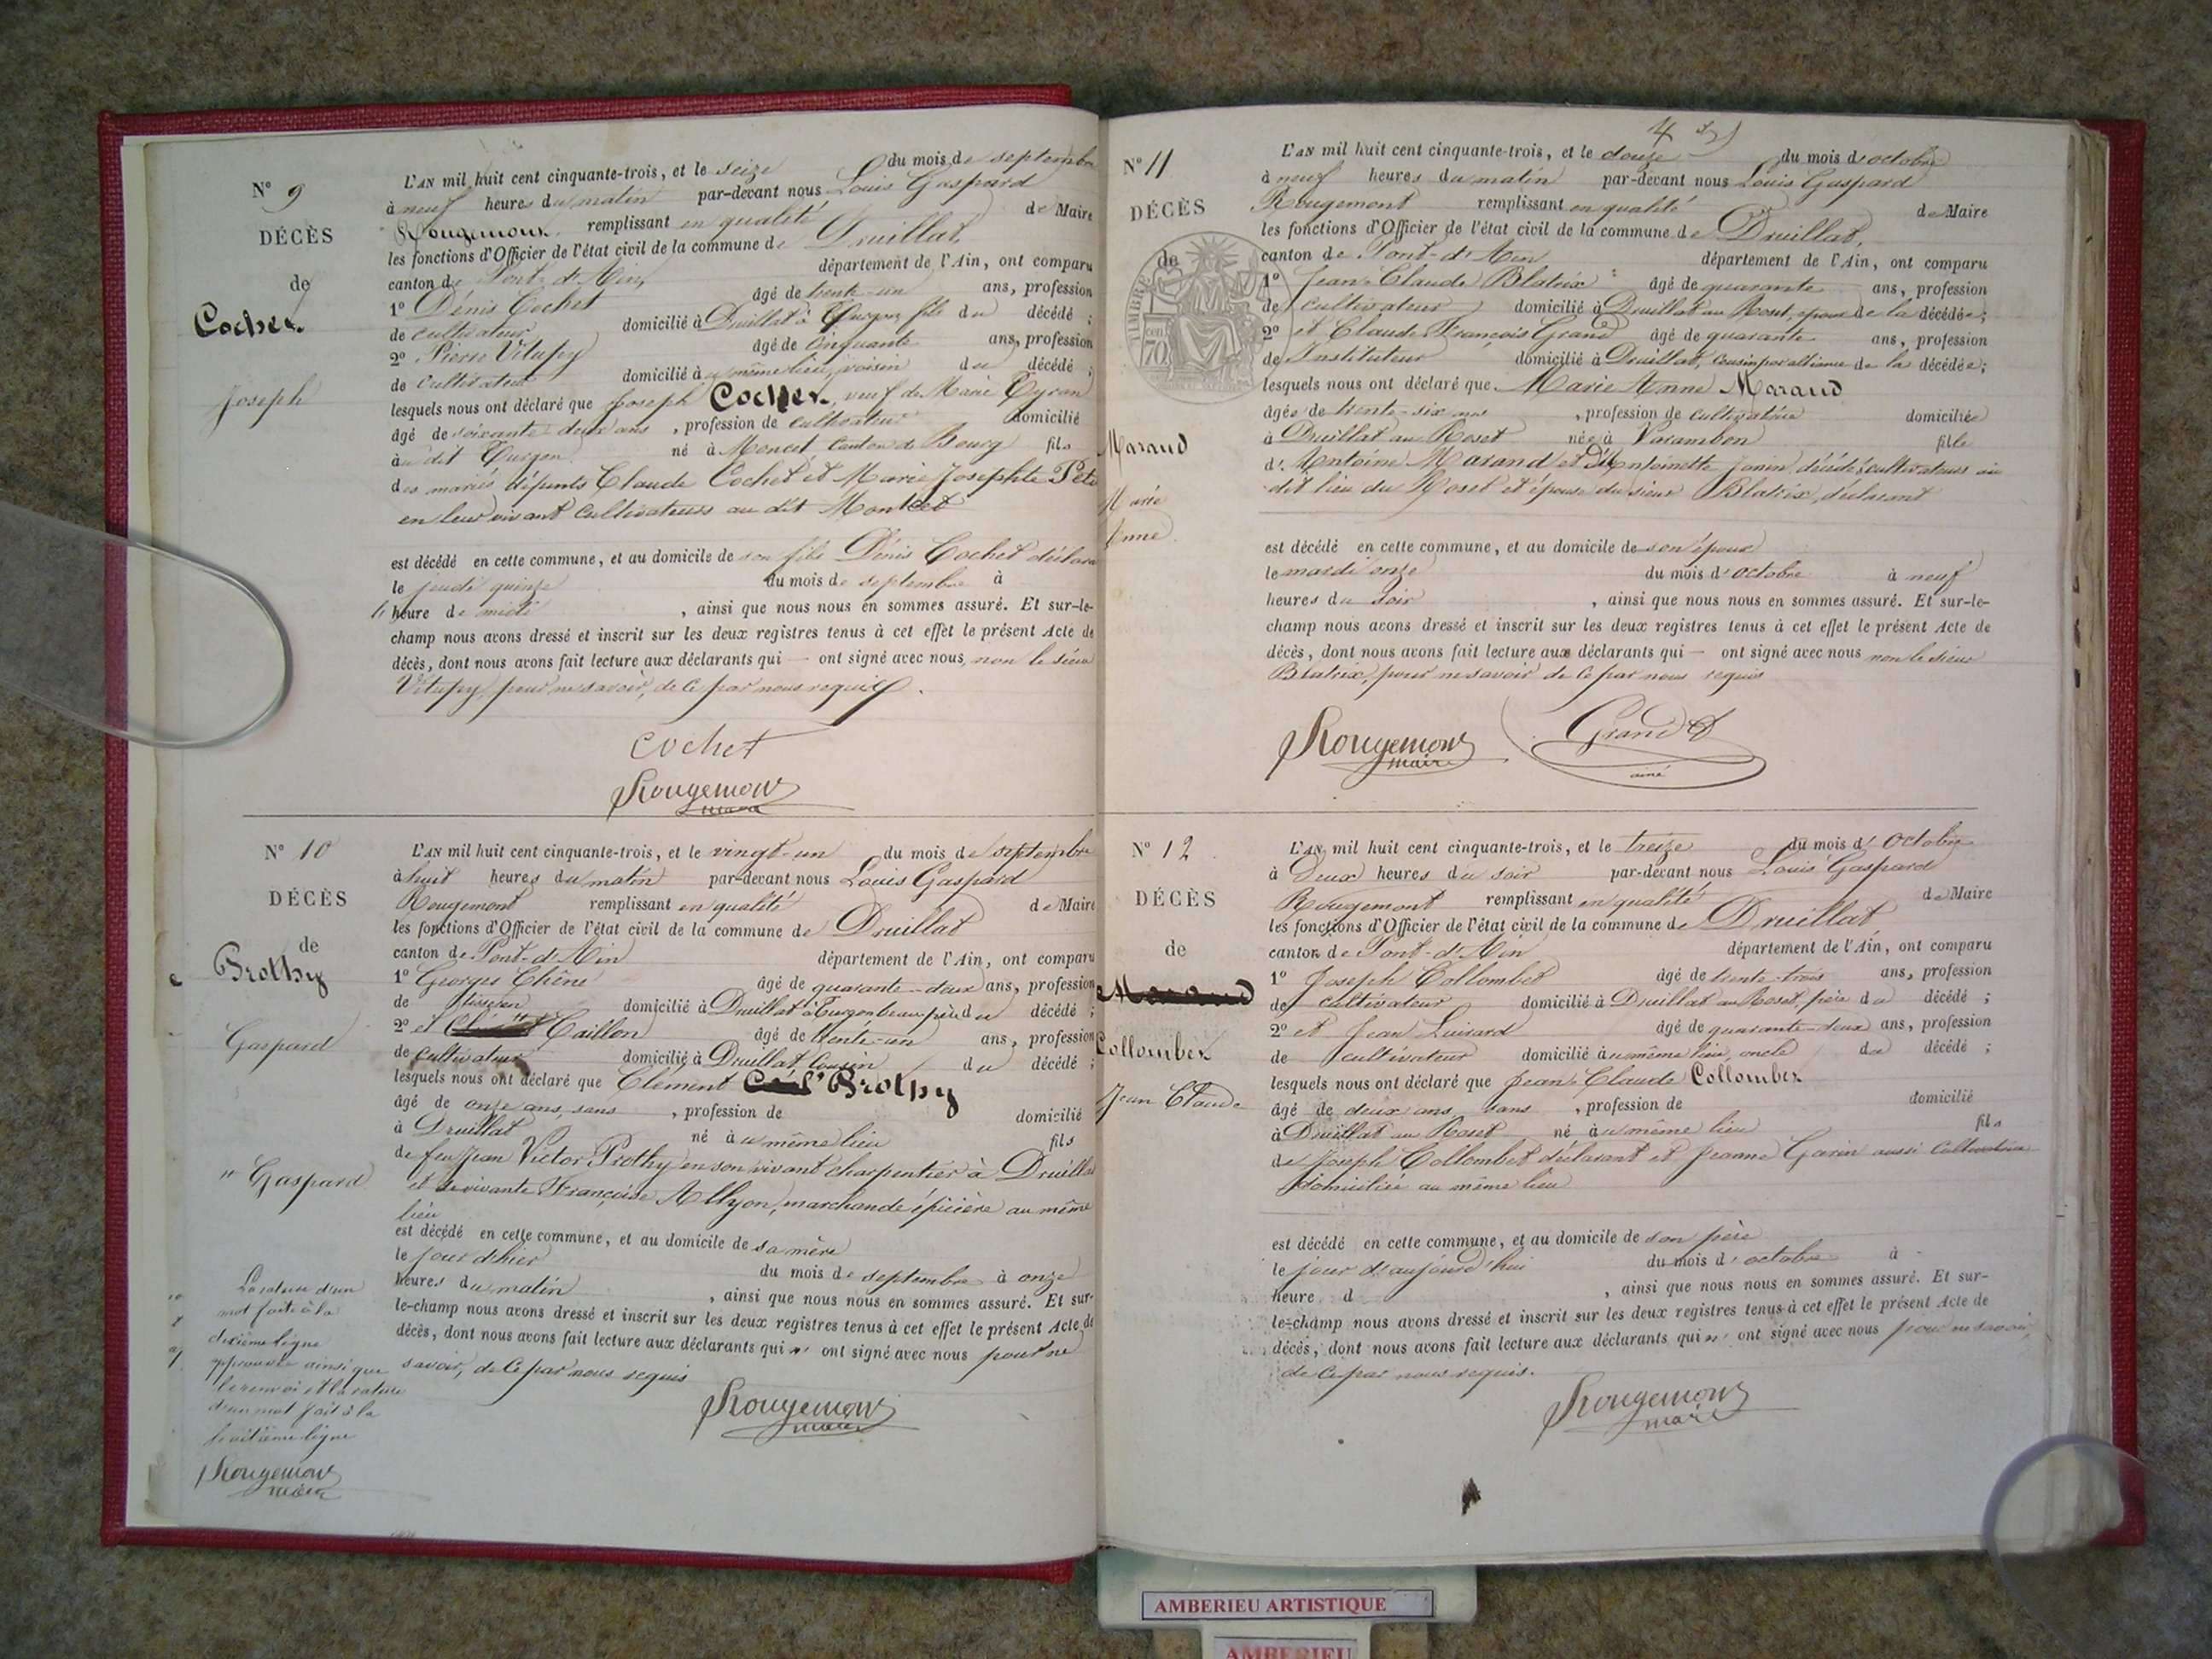 N° 9
DÉCÈS
de
Cochet
Joseph
L'AN mil huit cent cinquante-trois, et le seize du mois de septembre
à neuf heures du matin par-devant nous Louis Gaspard
Rougemont remplissant en qualité de Maire
les fonctions d'Officier de l'état civil de la commune de Druillat,
canton de Pont-d'Ain, département de l'Ain, ont comparu
1° Dénis Cochet âgé de trente-un ans, profession
de cultivateur domicilié à Druillat à Turgon fils du décédé ;
2° Pierre Vitupy âgé de cinquante ans, profession
de cultivateur domicilié à même lieu, voisin du décédé ;
lesquels nous ont déclaré que Joseph Cochet, veuf de Marie
âgé de soixante-deux ans, profession de cultivateur domicilié
au dit Turgon né à Moncet canton de Bourg fils
des mariés défunts Claude Cochet et Marie Josephte
en leur vivant cultivateurs au dit Montcet
est décédé en cette commune, et au domicile de son fils Dénis Cochet
le jeudi quinze du mois de septembre à
heure de midi, ainsi que nous nous en sommes assuré. Et sur-le-
champ nous avons dressé et inscrit sur les deux registres tenus à cet effet le présent Acte de
décès, dont nous avons fait lecture aux déclarants qui — ont signé avec nous, non le sieur
Vitupy, pour ne savoir, de ce par nous requis.
Cochet
Rougemont
maire
N° 10
DÉCÈS
de
Brothy
Gaspard
" Gaspard
L'AN mil huit cent cinquante-trois, et le vingt-un du mois de septembre
à huit heures du matin par-devant nous Louis Gaspard
Rougemont remplissant en qualité de Maire
les fonctions d'Officier de l'état civil de la commune de Druillat
canton de Pont-d'Ain département de l'Ain, ont comparu
1° Georges Chêne âgé de quarante-deux ans, profession
de domicilié à Druillat à Turgon beau-père du décédé ;
2° et Caillon âgé de trente-un ans, profession
de cultivateur domicilié à Druillat, cousin du décédé ;
lesquels nous ont déclaré que Clément Brothy
âgé de onze ans, sans, profession de domicilié
à Druillat né au même lieu fils
de feu Jean Victor Prothy en son vivant charpentier à Druillat
et de vivante Françoise Allyon, marchande épicière au même
lieu
est décédé en cette commune, et au domicile de sa mère
le jour d'hier du mois de septembre à onze
heures du matin, ainsi que nous nous en sommes assuré. Et sur-
le-champ nous avons dressé et inscrit sur les deux registres tenus à cet effet le présent Acte de
décès, dont nous avons fait lecture aux déclarants qui n' ont signé avec nous pour ne
savoir, de ce par nous requis
Rougemont
maire
La rature d'un
mot faite à la
dixième ligne
approuvée ainsi que
le renvoi et la rature
d'un mot fait à la
huitième ligne
Rougemont
maire
N° 11
DÉCÈS
de
TIMBRE
70
Marand
Marie
Anne
L'AN mil huit cent cinquante-trois, et le douze du mois d'octobre
à neuf heures du matin par-devant nous Louis Gaspard
Rougemont remplissant en qualité de Maire
les fonctions d'Officier de l'état civil de la commune de Druillat,
canton de Pont-d'Ain département de l'Ain, ont comparu
1° Jean-Claude Blatrix âgé de quarante ans, profession
de cultivateur domicilié à Druillat au Roset, époux de la décédée ;
2° et Claude François Grand âgé de quarante ans, profession
de Instituteur domicilié à Druillat, cousin par alliance de la décédée ;
lesquels nous ont déclaré que Marie Anne Marand
âgée de trente-six ans, profession de cultivatrice domiciliée
à Druillat au Roset née à Varambon fille
d'Antoine Marand et d'Antoinette Janin décédés cultivateurs au
dit lieu du Roset et épouse du sieur Blatrix, déclarant
est décédé en cette commune, et au domicile de son époux
le mardi onze du mois d'octobre à neuf
heures du soir, ainsi que nous nous en sommes assuré. Et sur-le-
champ nous avons dressé et inscrit sur les deux registres tenus à cet effet le présent Acte de
décès, dont nous avons fait lecture aux déclarants qui — ont signé avec nous non le sieur
Blatrix, pour ne savoir de ce par nous requis
Rougemont
maire
Grand
ainé
N° 12
DÉCÈS
de
Collombet
Jean Claude
L'AN mil huit cent cinquante-trois, et le treize du mois d'Octobre
à Deux heures du soir par-devant nous Louis Gaspard
Rougemont remplissant en qualité de Maire
les fonctions d'Officier de l'état civil de la commune de Druillat
canton de Pont-d'Ain département de l'Ain, ont comparu
1° Joseph Collombet âgé de trente-trois ans, profession
de cultivateur domicilié à Druillat au Roset, père du décédé ;
2° et Jean Luisard âgé de quarante-deux ans, profession
de cultivateur domicilié au même lieu, oncle du décédé ;
lesquels nous ont déclaré que Jean-Claude Collombet
âgé de deux ans, sans, profession de domicilié
à Druillat au Roset né au même lieu fils
de Joseph Collombet déclarant et Jeanne Garin aussi cultivatrice
domiciliée au même lieu
est décédé en cette commune, et au domicile de son père
le jour d'aujourd'hui du mois d'octobre à -
heure d , ainsi que nous nous en sommes assuré. Et sur-
le-champ nous avons dressé et inscrit sur les deux registres tenus à cet effet le présent Acte de
décès, dont nous avons fait lecture aux déclarants qui n' ont signé avec nous pour ne savoir,
de ce par nous requis.
Rougemont
maire
AMBERIEU ARTISTIQUE
AMBERIEU